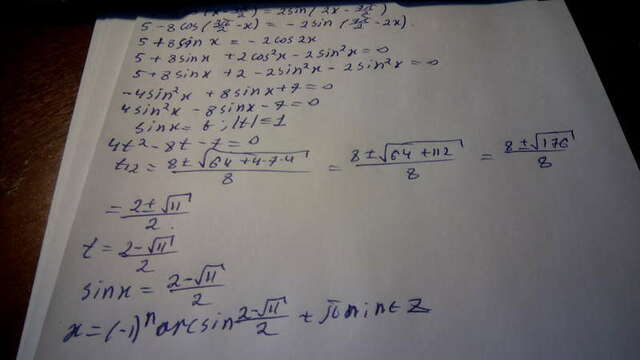 5 - 8cos(3π/2 - x) = -2sin(3π/2 - 2x).
5 + 8sinx = -2cos2x
5 + 8sinx + 2cos²x - 2sin²x = 0
5 + 8sinx + 2 - 2sin²x - 2sin²x = 0
-4sin²x + 8sinx + 7 = 0
4sin²x - 8sinx - 7 = 0
sinx = t; |t| ≤ 1
4t² - 8t - 7 = 0
t₁₂ = (8 ± √(64 + 4·7·4))/8 = (8 ± √(64 + 112))/8 = (8 ± √176)/8
= (2 ± √11)/2
t = (2 - √11)/2
sinx = (2 - √11)/2
x = (-1)ⁿ arcsin (2 - √11)/2 + πn; n ∈ Z